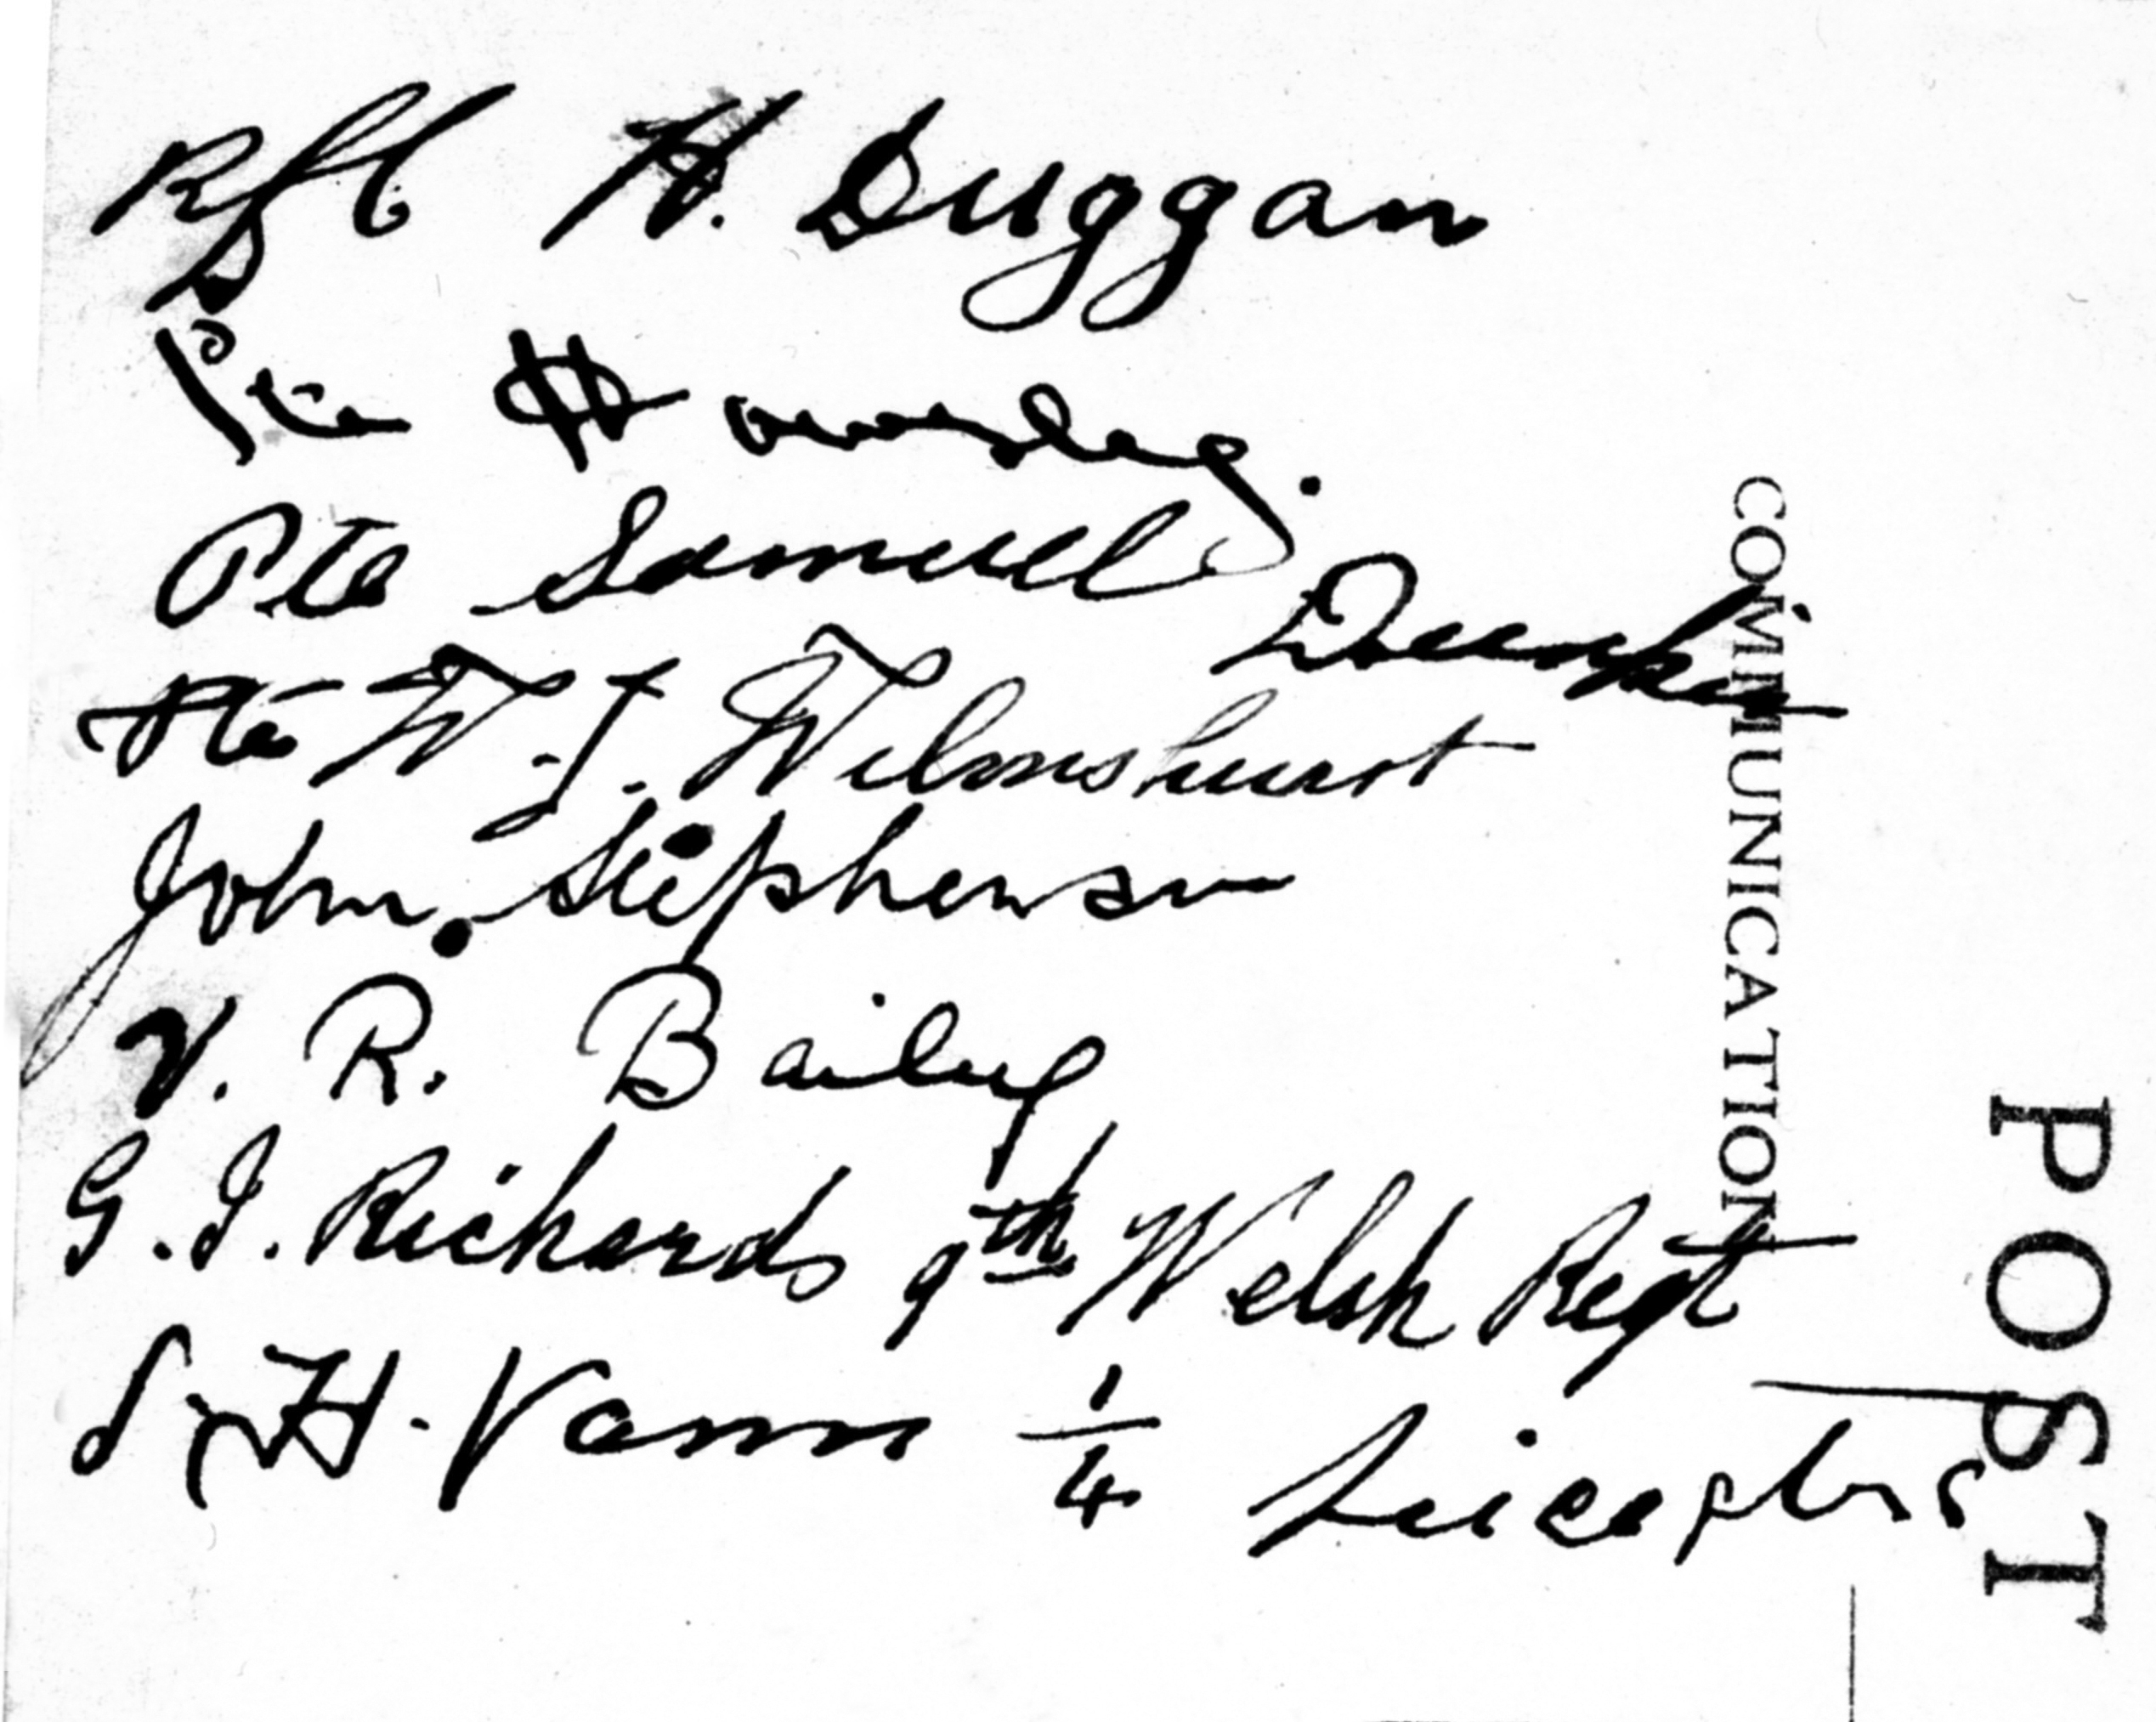 Rfl H. Duggan
Pte
Pte Samuel Dunkin
Pte W. J. Wilmshurst
John Stephenson
V. R. Bailey
G. J. Richards 9th Welsh Regt
H. Vann 1/4 Leicesters
COMMUNICATION
POST